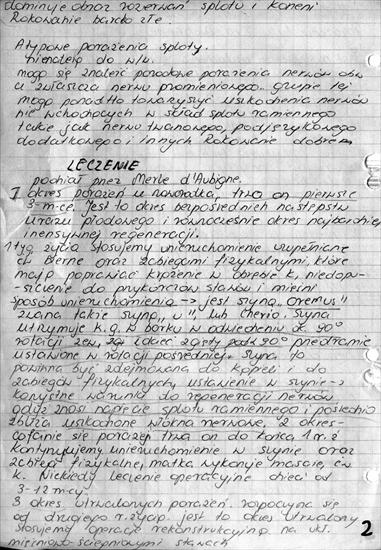 dominuje obraz rozerwań splotu i korzeni
Rokowanie bardzo złe.
Atypowe porażenia splotu.
nienależą do w/w.
mogą się znaleźć porodowe porażenia nerwów obw
a zwłaszcza nerwu promieniowego. grupie tej
mogą ponadto towarzyszyć uszkodzenia nerwów
nie wchodzących w skład splotu ramiennego
takie jak nerwu twarzowego, podjęzykowego
dodatkowego i innych Rokowanie dobrem
LECZENIE
podział przez Merle d'Aubigne.
I okres porażeń u noworodka, trwa on pierwsze
3-m-ce. Jest to okres bezpośrednich następstw
urazu płodowego i równocześnie okres najbardziej
intensywnej regeneracji.
1 tyg życia stosujemy unieruchomienie uzupełniane
ćw Bierne oraz zabiegami fizykalnymi, które
mają poprawiać krążenie w obrębie k, niedopu-
szczenie do przykurczów stawów i mięśni
sposób unieruchomienia → jest szyna "oremus"
zwana także szyną "u", lub cherio. Szyna
utrzymuje k.g. w barku w odwiedzeniu ok 90°
rotacji zew, zaś łokieć zgięty pod 90° przedramię
ustawione w rotacji pośredniej. Szyna ta
powinna być zdejmowana do kąpieli i do
zabiegów fizykalnych, ustawienie w szynie →
korzystne warunki do regeneracji nerwów
gdyż znosi napięcie splotu ramiennego i pośrednio
zbliża uszkodzone włókna nerwowe. 2 okres-
cofanie się porażeń trwa on do końca 1 r.ż
kontynujemy unieruchomienie w szynie oraz
zabiegi fizykalne, matka wykonuje masaże, ćw
k. Niekiedy leczenie operacyjne dzieci od
3-12 m-cy.
3 okres utrwalonych porażeń. rozpoczyna się
od drugiego r. życia. jest to okres utrwalony
stosujemy operacje rekonstrukcyjne na ukł.
mięśniowo-ścięgnowym stawach
2